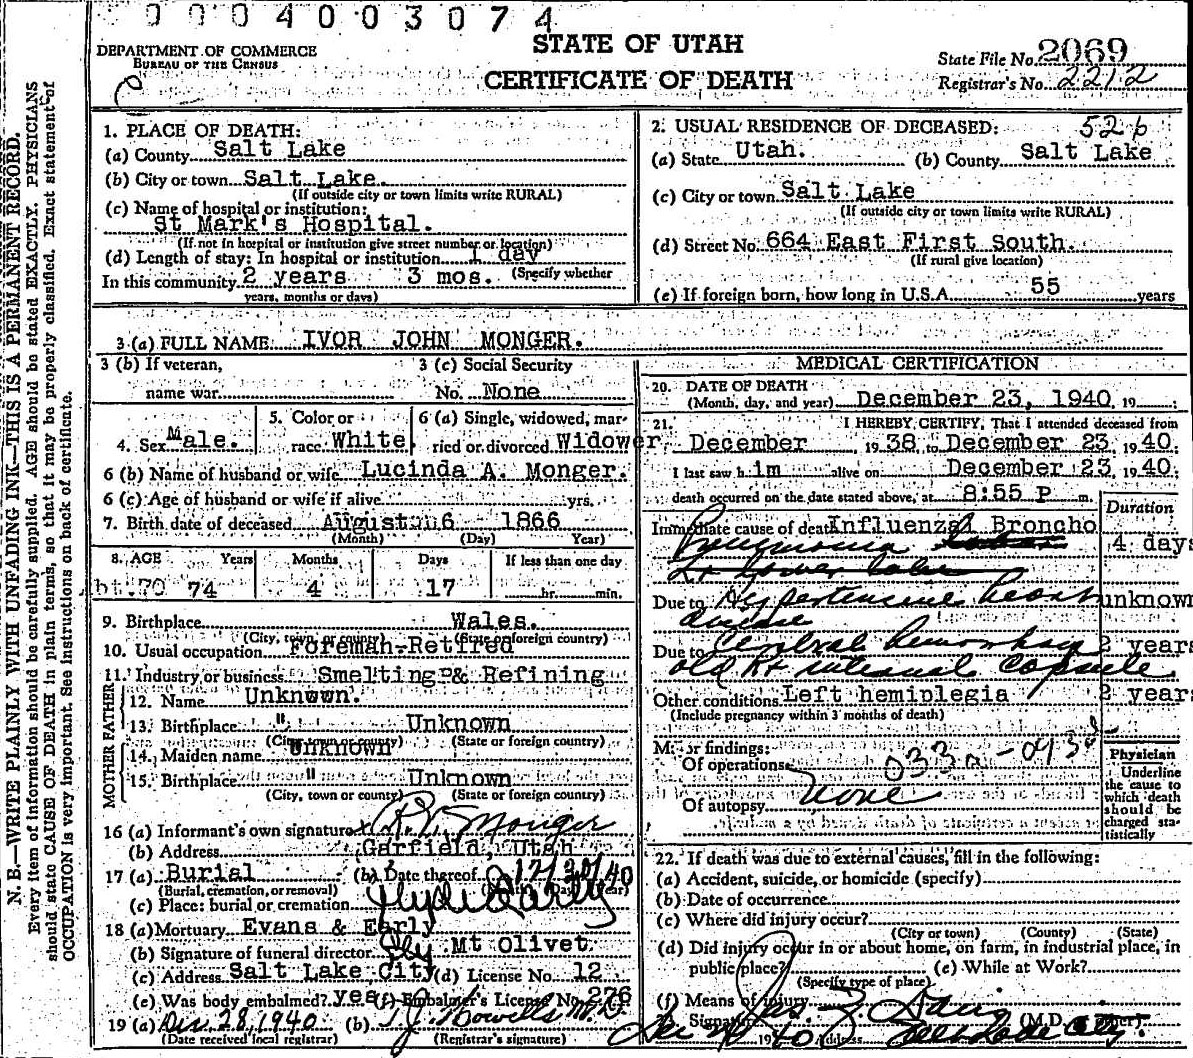 0 0 0 4 0 0 3 0 7 4
DEPARTMENT OF COMMERCE
BUREAU OF THE CENSUS
STATE OF UTAH
CERTIFICATE OF DEATH
State File No. 2069
Registrar's No. 2212
N. B.—WRITE PLAINLY WITH UNFADING INK—THIS IS A PERMANENT RECORD.
Every item of information should be carefully supplied. AGE should be stated EXACTLY. PHYSICIANS
should state CAUSE OF DEATH in plain terms, so that it may be properly classified. Exact statement of
OCCUPATION is very important. See instructions on back of certificate.
1. PLACE OF DEATH:
(a) County Salt Lake
(b) City or town Salt Lake.
(If outside city or town limits write RURAL)
(c) Name of hospital or institution:
St Mark's Hospital.
(If not in hospital or institution give street number or location)
(d) Length of stay: In hospital or institution 1 day
In this community 2 years 3 mos. (Specify whether
years, months or days)
2. USUAL RESIDENCE OF DECEASED: 526
(a) State Utah. (b) County Salt Lake
(c) City or town Salt Lake
(If outside city or town limits write RURAL)
(d) Street No. 664 East First South.
(If rural give location)
(e) If foreign born, how long in U.S.A. 55 years
3 (a) FULL NAME: IVOR JOHN MONGER.
3 (b) If veteran, 3 (c) Social Security
name war No. None
4. Sex Male. 5. Color or race White. 6 (a) Single, widowed, married or divorced Widower
6 (b) Name of husband or wife Lucinda A. Monger.
6 (c) Age of husband or wife if alive yrs.
7. Birth date of deceased August 6 1866
(Month) (Day) Year)
8. AGE Years Months Days If less than one day
74 4 17 hr. min.
9. Birthplace Wales.
(City, town, or county) (State or foreign country)
10. Usual occupation Foreman-Retired
11. Industry or business Smelting & Refining
FATHER
12. Name Unknown.
13. Birthplace " Unknown
(City, town or county) (State or foreign country)
MOTHER
14. Maiden name Unknown
15. Birthplace " Unknown
(City, town or county) (State or foreign country)
16 (a) Informant's own signature Monger
(b) Address Garfield, Utah
17 (a) Burial (b) Date thereof 12/30/40
(Burial, cremation, or removal)
(c) Place: burial or cremation
18 (a) Mortuary Evans & Early
(b) Signature of funeral director Mt Olivet.
(c) Address Salt Lake City (d) License No. 12
(e) Was body embalmed? yes (f) Embalmer's License No. 276
19 (a) Dec. 28, 1940 (b) T. J. Howells M.D.
(Date received local registrar) (Registrar's signature)
MEDICAL CERTIFICATION
20. DATE OF DEATH
(Month, day, and year) December 23, 1940, 19
21. I HEREBY CERTIFY, That I attended deceased from
December 19 38, to December 23 19 40.
I last saw h im alive on December 23 19 40.
death occurred on the date stated above, at 8:55 P m.
Duration
Immediate cause of death Influenzal Broncho 4 days
Pneumonia
Lt Lower lobe
Due to Hypertensive heart unknown
disease
Due to Cerebral hemorrhage 2 years
old Rt internal Capsule
Other conditions Left hemiplegia 2 years
(Include pregnancy within 3 months of death)
Major findings:
Of operations
Of autopsy none
Physician
Underline
the cause to
which death
should be
charged sta-
tistically
22. If death was due to external causes, fill in the following:
(a) Accident, suicide, or homicide (specify)
(b) Date of occurrence
(c) Where did injury occur?
(City or town) (County) (State)
(d) Did injury occur in or about home, on farm, in industrial place, in
public place? (e) While at Work?
(Specify type of place)
(f) Means of injury
Signature (M.D. or other)
19 40 Address